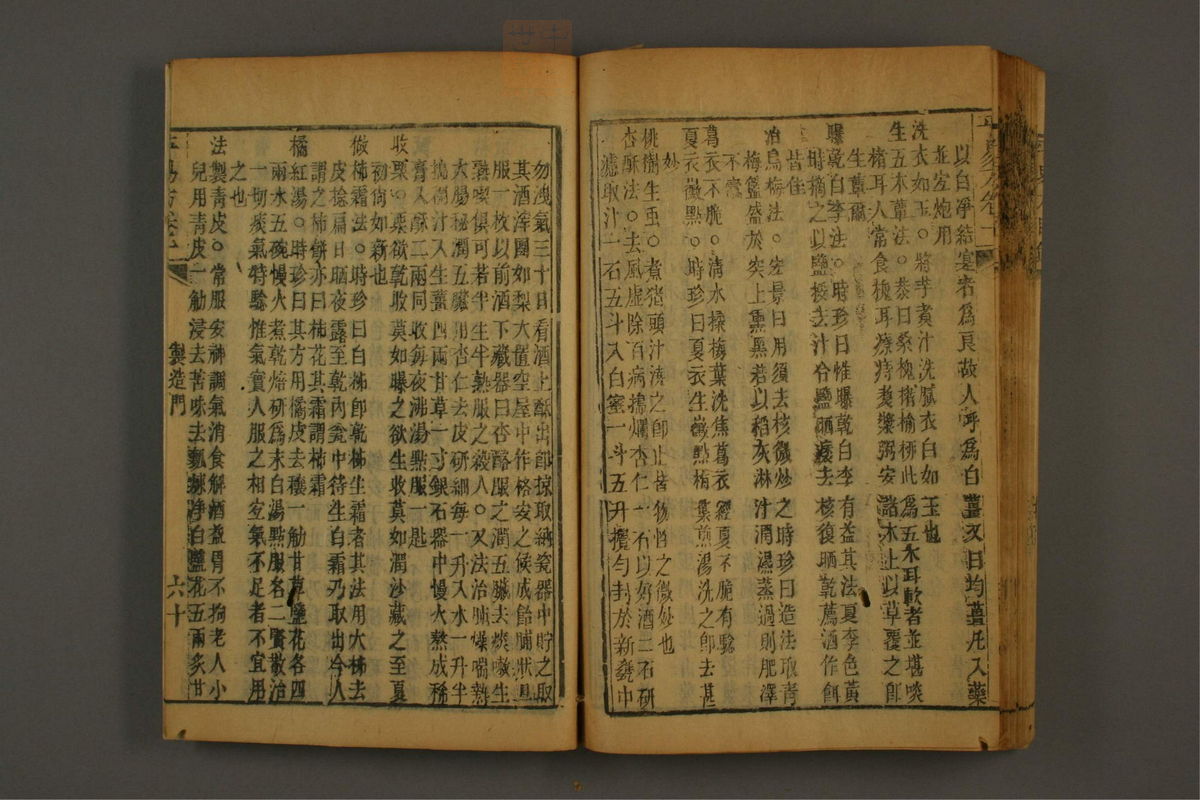 以白淨結實者爲良故人呼爲白薑又曰均薑凡入藥
並宜炮用
洗衣如玉○將芋煮汁洗膩衣白如玉也
生五木蕈法○恭曰桑槐楮榆柳此爲五木耳軟者並堪啖
楮耳人常食槐耳療痔煮漿粥安諸木上以草覆之卽
生蕈爾
曝乾白李法○時珍曰惟曝乾白李有益其法夏李色黃
時摘之以鹽挼去汁合鹽晒萎去核復晒乾薦酒作飣
皆佳
治烏梅法○宏景曰用須去核微炒之時珍曰造法取青
梅籃盛於突上熏黑若以稻灰淋汁潤濕蒸過則肥澤
不蠹
葛衣不脆○清水揉梅葉洗焦葛衣經夏不脆有驗
夏衣黴點○時珍曰夏衣生黴點梅葉煎湯洗之卽去甚
妙
桃樹生虫○煮猪頭汁澆之卽止皆物性之微妙也
杏酥法○去風虛除百病擣爛杏仁一石以好酒二石研
濾取汁一石五斗入白蜜一斗五升攪勻封於新甕中
勿洩氣三十日看酒上酥出卽掠取納瓷器中貯之取
其酒滓團如梨大置空屋中作格安之候成飴脯狀旦
服一枚以前酒下藏器曰杏酪服之潤五臟去痰嗽生
熟喫俱可若半生半熟服之殺人○又法治肺燥喘熱
大腸秘潤五臟用杏仁去皮研細每一升入水一升半
搗稠汁入生薑四兩甘草一寸銀石器中慢火熬成稀
膏入酥二兩同收每夜沸湯點服一匙
收栗○栗欲乾收莫如曝之欲生收莫如潤沙藏之至夏
初尙如新也
做柿霜法○時珍曰白柿卽乾柿生霜者其法用大柿去
皮捻扁日晒夜露至乾內瓮中待生白霜乃取出今人
謂之柿餅亦曰柿花其霜謂柿霜
橘紅湯○時珍曰其方用橘皮去穰一觔甘草鹽花各四
兩水五碗慢火煮乾焙研爲末白湯點服名二賢散治
一切痰氣特驗惟氣實人服之相宜氣不足者不宜用
之也
法製青皮○常服安神調氣消食解酒益胃不拘老人小
兒用青皮一觔浸去苦味去瓤揀淨白鹽花五兩炙甘
製造門
六十